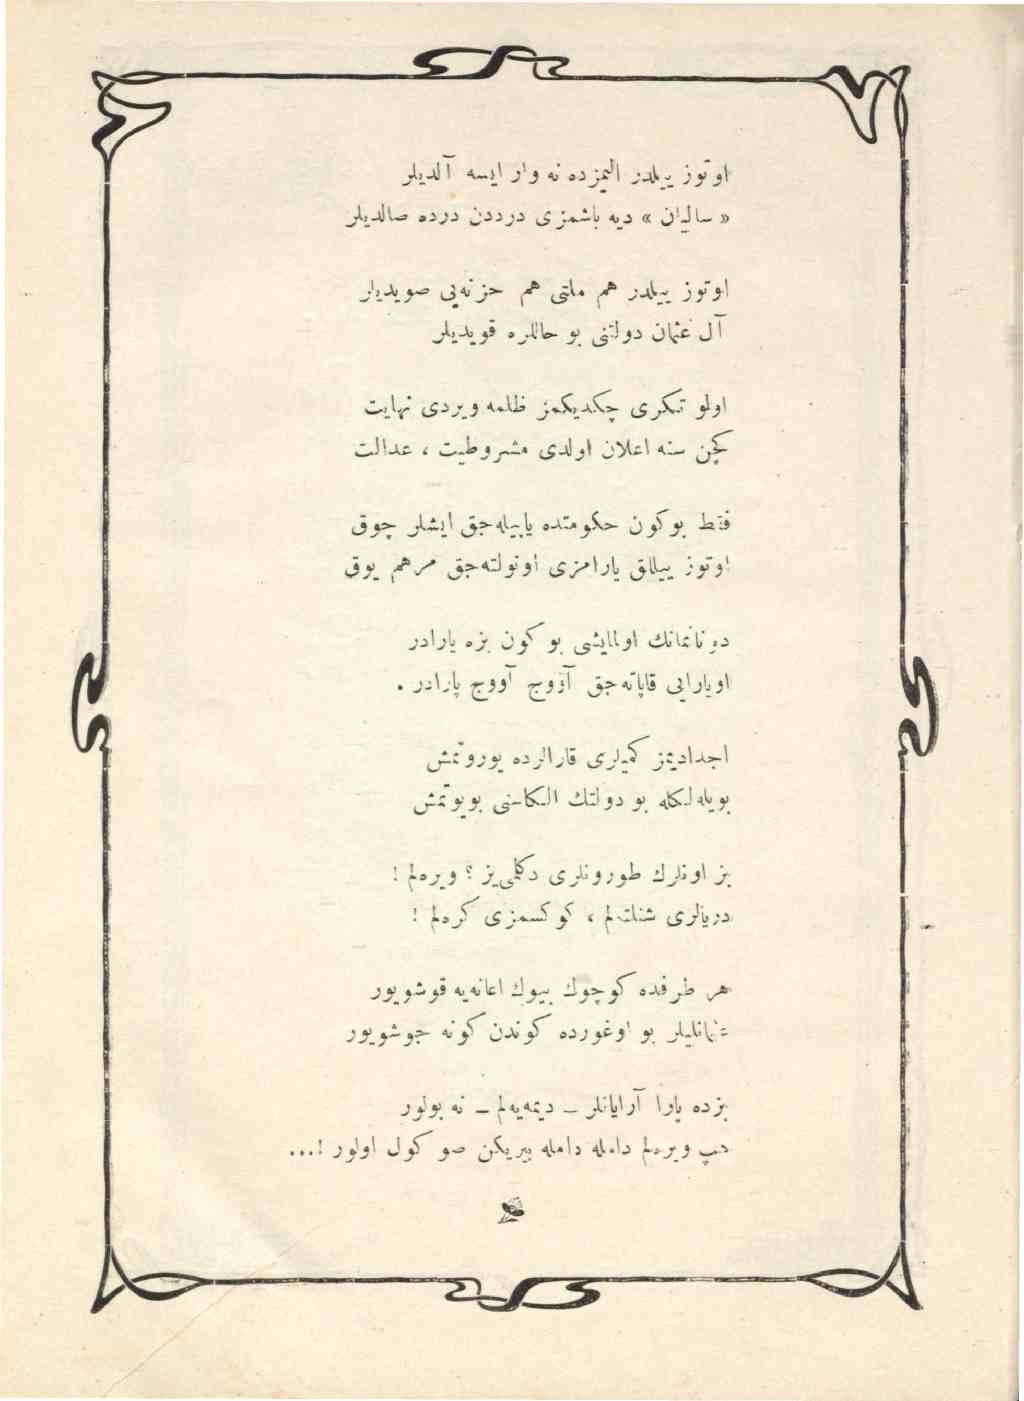 اوتوز ییلدر الیمزده نه وار ایسه آلدیلر
« سالیان » دیه باشمزی درددن درده صالدیلر
اوتوز ییلدر هم ملتی هم حزنه‌یی صویدیلر
آل عثمان دولتنی بو حاللره قویدیلر
اولو تڭری چكدیكمز ظلمه ویردی نهایت
كچن سنه اعلان اولدی مشروطیت ، عدالت
فقط بوكون حكومتده یاپیله‌جق ایشلر چوق
اوتوز ییللق یارامزی اونولته‌جق مرهم یوق
دونانمانك اولمایشی بو كون بزه یارادر
اویارایی قاپاته‌جق آووج آووج پارادر .
اجدادیمز كمیلری قارالرده یوروتمش
بویله‌لكله بو دولتك الكاسنی بویوتمش
بز اونلرك طورونلری دكلمی‌یز ؟ ویره‌لم !
دریالری شنلته‌لم ، كوكسمزی كره‌لم !
هر طرفده كوچوك بیوك اعانه‌یه قوشویور
عثمانلیلر بو اوغورده كوندن كونه جوشویور
بزده پارا آرایانلر ــ دیمه‌یه‌لم ــ نه بولور
هپ ویره‌لم دامله دامله بیریكن صو كول اولور !...